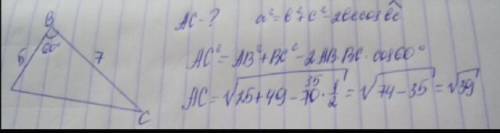 B
60°
5
7
C
AC - ?
a² = b² + c² - 2bc cos
AC² = AB² + BC² - 2AB·BC·cos60°
AC = √25+49-70·1/2 = √74-35 = √39
35